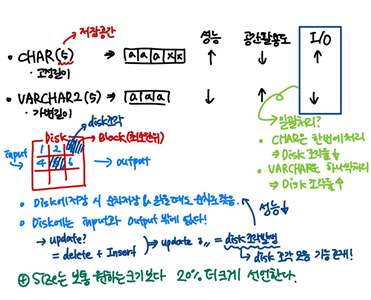 저장공간
성능 공간활용도 I/O
• CHAR(5) → a a a x x ↑ ↓ ↑
- 고정길이
• VARCHAR2(5) → a a a ↓ ↑ ↓
- 가변길이
disk조각
Disk → Block(최소단위)
Input 1 2
4 6 → output
일괄처리?
• CHAR은 한번에 처리
⇒ Disk 조각율↓
• VARCHAR은 하나씩처리
⇒ Disk 조각율↑
• Disk에 저장 시 순차저장
성능↓
• Disk에는 Input과 Output 밖에 없다!
→ update?
= delete + Insert ⇒ update = disk조각발생
↳ disk 조각 모음 기능 존재!
⊕ Size는 보통 원하는크기보다 20% 더크게 선언한다.